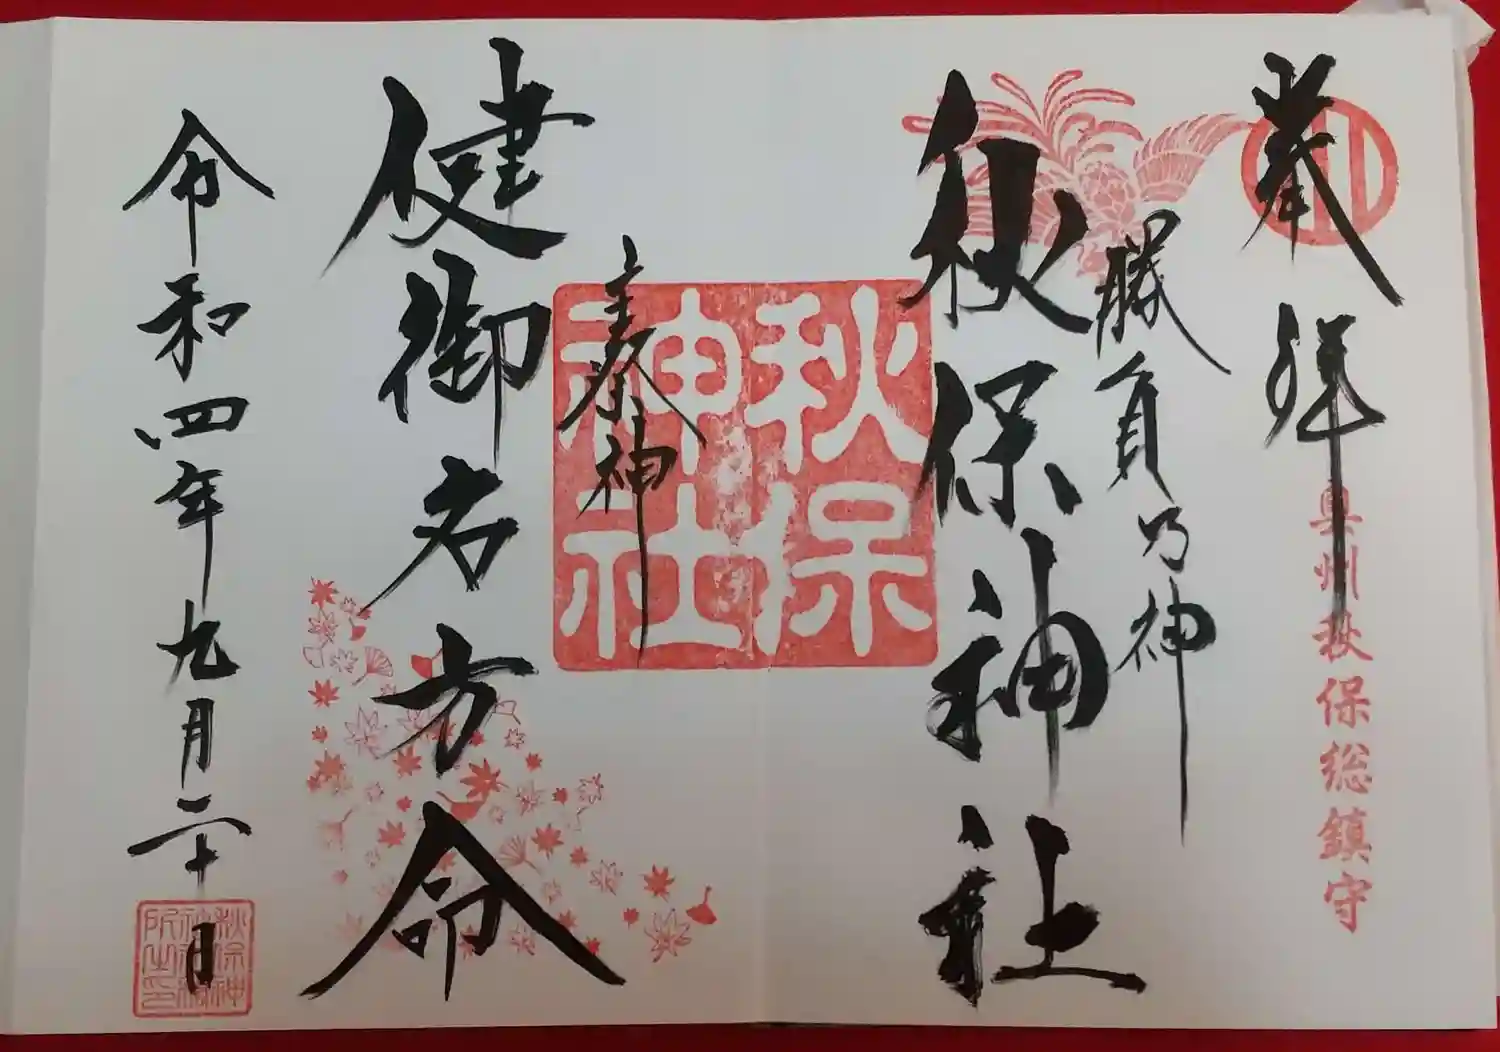 奉拝
奥州秋保総鎮守
勝負乃神
秋保神社
秋保
神社
主祭神
健御名方命
令和四年九月二十日
秋保神